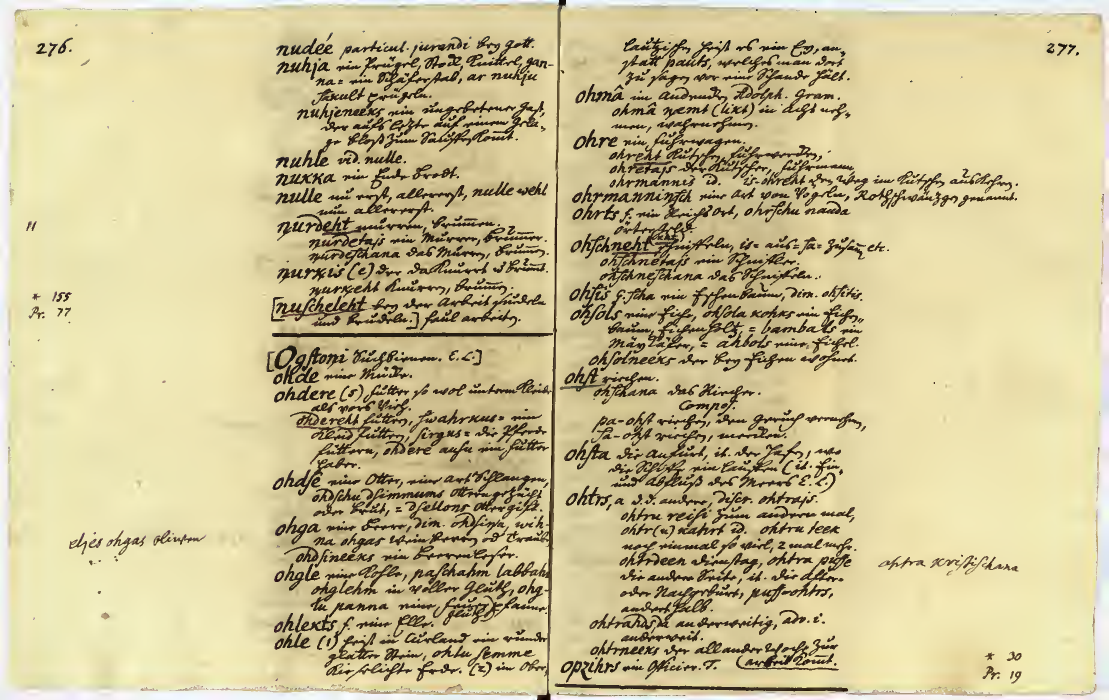 276.
nudée particul. jurandi bey Gott.
nuhja ein Prügel, Stock, Knittel, gan-
na= ein Schäferstab, ar nuhju
sakult prügeln.
nuhjeneeks ein ungebetener Gast,
der aufs letzte auf einem Gela-
ge bloß zum Sauffen komt.
nuhle vid. nulle.
nukka ein Ende Brodt.
nulle nu erst, allererst, nulle wehl
nun allererst.
nurdeht murren, brummen.
nurdetajs ein Murrer, Brummer.
nurdeschana das Murren, Brummen.
nurkis (e) der da knurrt u brumt.
nurkeht knurren, brummen.
[nuscheleht bey der Arbeit sudeln
und brudeln.] faul arbeiten.
11
* 155
Pr. 77
[Ogstoni Suchbienen. E. L.]
ohde eine Mücke.
ohdere (s) Futter so wol unterm Kleide
als vors Vieh.
ohdereht futtern, swahrkus= ein
Kleid futtern, sirgus= die Pferde
füttern, ohdere auhu ein Futter
haber.
ohdse eine Otter, eine art Schlangen,
ohdschu dsimmums Otterngezücht
oder Brut, = dsellons Ottergift.
ohga eine Beere, dim. ohdsina, wih-
na ohgas wein Beeren od Trauben
ohdsineeks ein Beerenleser.
eljes ohgas Oliwen
ohgle eine Kohle, paschahm labbahm
ohglehm in voller Gluth, ohg-
lu panna eine Feuer Pfanne
Gluth
ohlekts f. eine Elle.
ohle (1) heist in Curland ein runder
glatter Stein, ohlu semme
kieslichte Erde. (2) in Ober,
277.
lautzischen heist es ein Ey, an,
statt pauts, welches man dort
zu sagen vor eine Schande hält.
ohmâ im andenken Adolph. Gram.
ohmâ ņemt (likt) in Acht neh,
men, wahrnehmen.
ohre ein Fuhrwagen.
ohreht Kutschen, Fuhrwerken,
ohretajs der Kutscher, Fuhrmann
ohrmannis id. is-ohreht den Weg im Kutschen ausKehren.
ohrmanningsch eine art von Vogeln, Rothschwänzgen genannt.
ohrts f. ein Reichs Ort, ohrtschu nauda
örtergeld.
ohschņeht schnüffeln, is= aus= sa= zusam etc.
ohschņetajs ein Schnüfler.
ohschņeschana das Schnüfeln.
ohsis G. scha ein Eschenbaum, dim. ohsitis.
ohsols eine Eiche, ohsola kohks ein Eichen,
baum, Eichenholtz, = bambals ein
mäykäfer, = ahbols eine Eichel.
ohsolneeks der bey Eichen wohnet.
ohst riechen.
ohschana das Riechen.
Compos.
pa-ohst riechen, den Geruch vernehmen,
sa-ohst riechen, mercken.
ohsta die Anfurt, it. der Hafen, wo
die Schiffe einlauffen (it. Ein,
und Abfluß des Meers E. L)
ohtrs, a d. d. andere, discr. ohtrajs.
ohtru reisi zum andern mal,
ohtr(u) kahrt id. ohtru teek
noch einmal so viel, 2 mal mehr.
ohtrdeen dienstag, ohtra pusse
die andere Seite, it. die After-
oder Nachgeburt, pussohtrs,
anderthalb.
ohtra kristischana
ohtrahds, da anderweitig, adv. i.
anderweit.
ohtrneeks der all ander Woche zur
arbeit komt.
opzihrs ein Officier. T.
* 30
Pr. 19